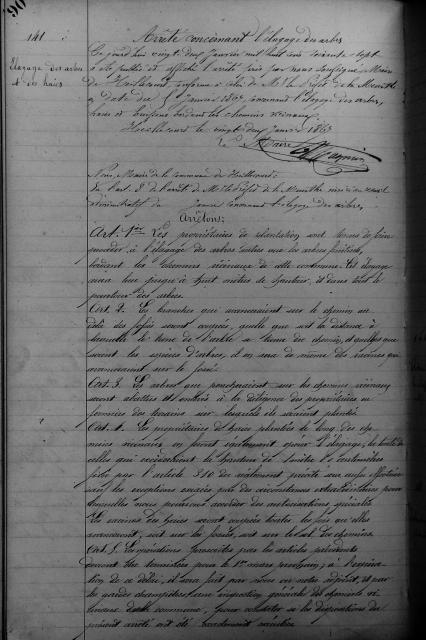 90
141
Arrêté concernant l'élagage des arbres
Elagage des arbres
et des haies
Ce jourd'hui vingt deux Janvier mil huit cent soixante sept
a été publié et affiché l'arrêté pris par nous soussigné, Maire
de conforme à celui de Mr le Préfet de la Meurthe
en date du Janvier 1867, concernant l'élagage des arbres,
haies et buissons bordant les chemins vicinaux.
le vingt deux Janvier 1867
Le Maire
Nous, Maire de la commune de
Vu l'art. 3 de l'arrêté de Mr le Préfet de la Meurthe inséré au recueil
administratif du Janvier concernant l'élagage des arbres,
Arrêtons:
Art. 1er Les propriétaires de plantations sont tenus de faire
procéder à l'élagage des arbres autres que les arbres fruitiers,
bordant les chemins vicinaux de cette commune. Cet élagage
aura lieu jusqu'à huit mètres de hauteur, et dans tout le
pourtour des arbres.
Art. 2. Les branches qui avanceraient sur le chemin au
delà des fossés seront coupées, quelle que soit la distance à
laquelle le tronc de l'arbre se trouve du chemin, et quelles que
soient les espèces d'arbres, il en sera de même des racines qui
avanceraient sur le fossé.
Art. 3. Les arbres qui pencheraient sur les chemins vicinaux
seront abattus et enlevés à la diligence des propriétaires ou
fermiers des terrains sur lesquels ils seraient plantés.
Art. 4. Les propriétaires de haies plantées le long des che-
mins vicinaux en feront également opérer l'élagage, la tonte de
celles qui excéderaient la hauteur de centimètres
fixée par l'article 310 du règlement précité
sauf les exceptions exigées par des circonstances extraordinaires pour
lesquelles nous pourrions accorder des autorisations spéciales.
Les racines des haies seront coupées toutes les fois qu'elles
avanceront, soit sur les fossés, soit sur le sol des chemins.
Art. 5. Les opérations prescrites par les articles précédents
devront être terminées pour le 1er mars prochain; à l'expira-
tion de ce délai, il sera fait par nous ou notre adjoint, et par
les gardes champêtres une inspection générale des chemins vi-
cinaux de la commune, pour constater si les dispositions du
présent arrêté ont été exactement exécutées.